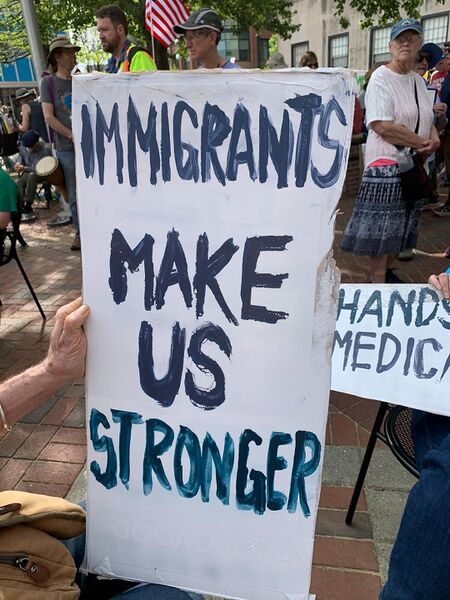 IMMIGRANTS
MAKE
US
STRONGER
HANDS
MEDICA